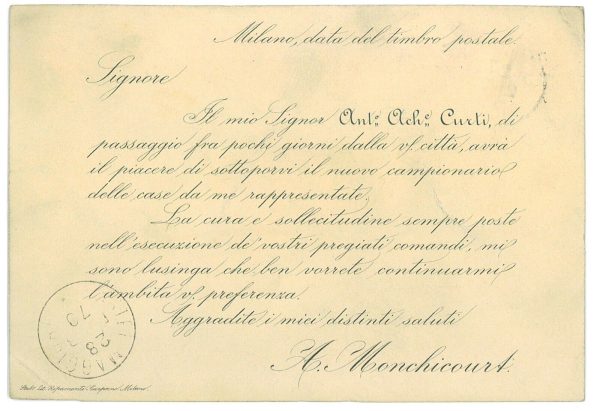 Milano, data del timbro postale.
Signore
Il mio Signor Ant.º Ach.e Curti, di
passaggio fra pochi giorni dalla v/. città, avrà
il piacere di sottoporvi il nuovo campionario
delle case da me rappresentate.
La cura e sollecitudine sempre poste
nell'esecuzione de' vostri pregiati comandi, mi
sono lusinga che ben vorrete continuarmi
l'ambita v/. preferenza.
Aggradite i miei distinti saluti
A. Monchicourt.
28
79
Milano.